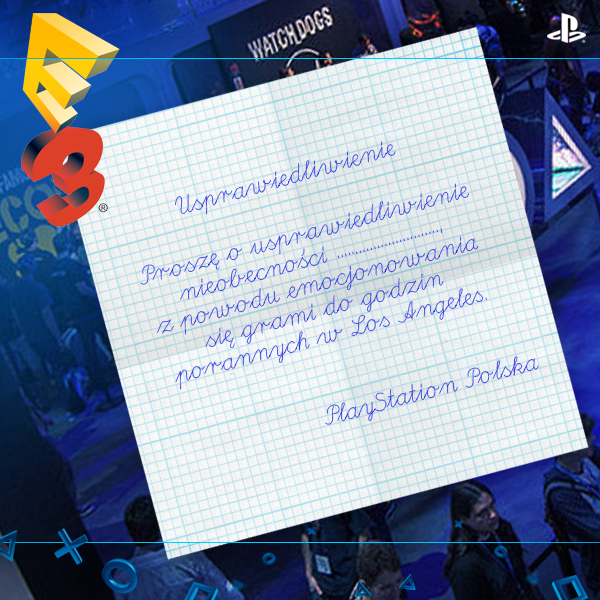 WATCH_DOGS
E3
Usprawiedliwienie
Proszę o usprawiedliwienie
nieobecności ............................,
z powodu emocjonowania
się grami do godzin
porannych w Los Angeles.
PlayStation Polska